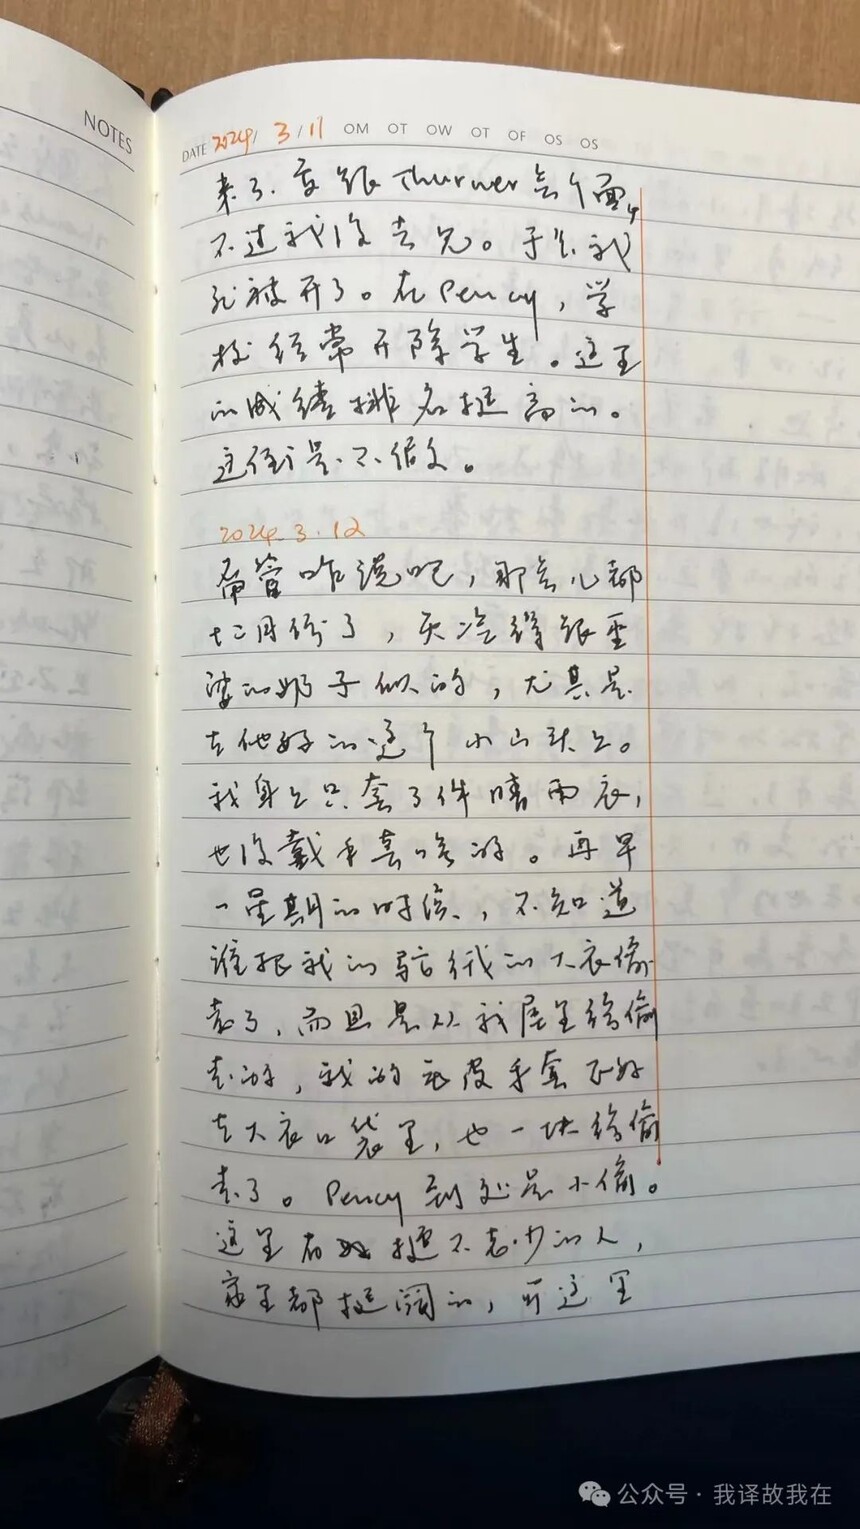 NOTES
DATE 2024/ 3/11 OM OT OW OT OF OS OS
来了。要跟Thurmer会个面,
不过我没去见。于是我
就被开了。在Pency,学
校经常开除学生。这里
的成绩排名挺高的。
这倒是不假。
2024.3.12
甭管咋说吧,那会儿都
十二月份了,天冷得跟巫
婆的奶子似的,尤其是
在他妈的这个小山头上。
我身上只套了件晴雨衣,
也没戴手套啥的。再早
一星期的时候,不知道
谁把我的骆驼绒的大衣偷
走了,而且是从我屋里给偷
走的,我的毛皮手套正好
在大衣口袋里,也一块给偷
走了。Pency到处是小偷。
这里有挺不老少的人,
家里都挺阔的,可这里
公众号·我译故我在